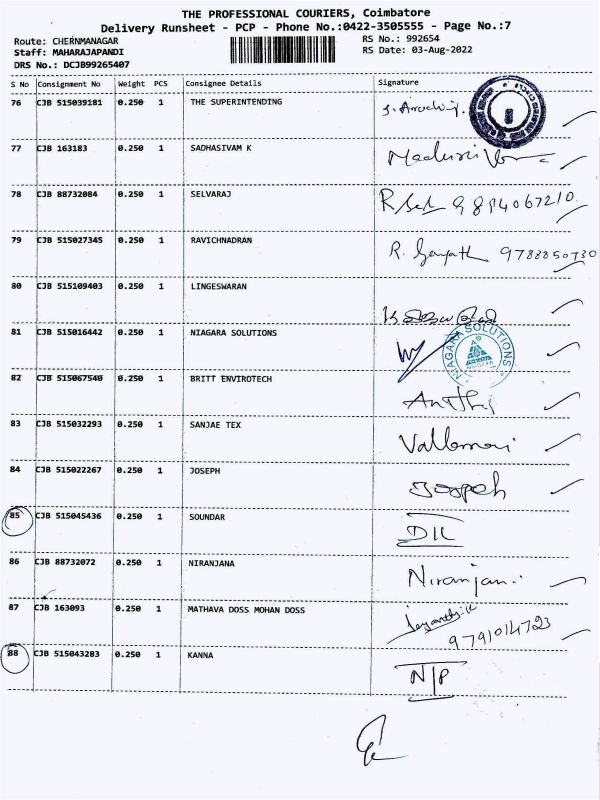 THE PROFESSIONAL COURIERS, Coimbatore
Delivery Runsheet - PCP - Phone No.:0422-3505555 - Page No.:7
Route: CHERNMANAGAR RS No.: 992654
Staff: MAHARAJAPANDI RS Date: 03-Aug-2022
DRS No.: DCJB99265407
S No Consignment No Weight PCS Consignee Details Signature
76 CJB 515039181 0.250 1 THE SUPERINTENDING
77 CJB 163183 0.250 1 SADHASIVAM K
78 CJB 88732084 0.250 1 SELVARAJ 9814067210
79 CJB 515027345 0.250 1 RAVICHNADRAN R. Gayath 9788850730
80 CJB 515109403 0.250 1 LINGESWARAN
81 CJB 515016442 0.250 1 NIAGARA SOLUTIONS NIAGARA SOLUTIONS
82 CJB 515067540 0.250 1 BRITT ENVIROTECH
83 CJB 515032293 0.250 1 SANJAE TEX
84 CJB 515022267 0.250 1 JOSEPH Joseph
85 CJB 515045436 0.250 1 SOUNDAR D/L
86 CJB 88732072 0.250 1 NIRANJANA Niranjana
87 CJB 163093 0.250 1 MATHAVA DOSS MOHAN DOSS Jayanthi.K
9791014723
88 CJB 515043283 0.250 1 KANNA N/P